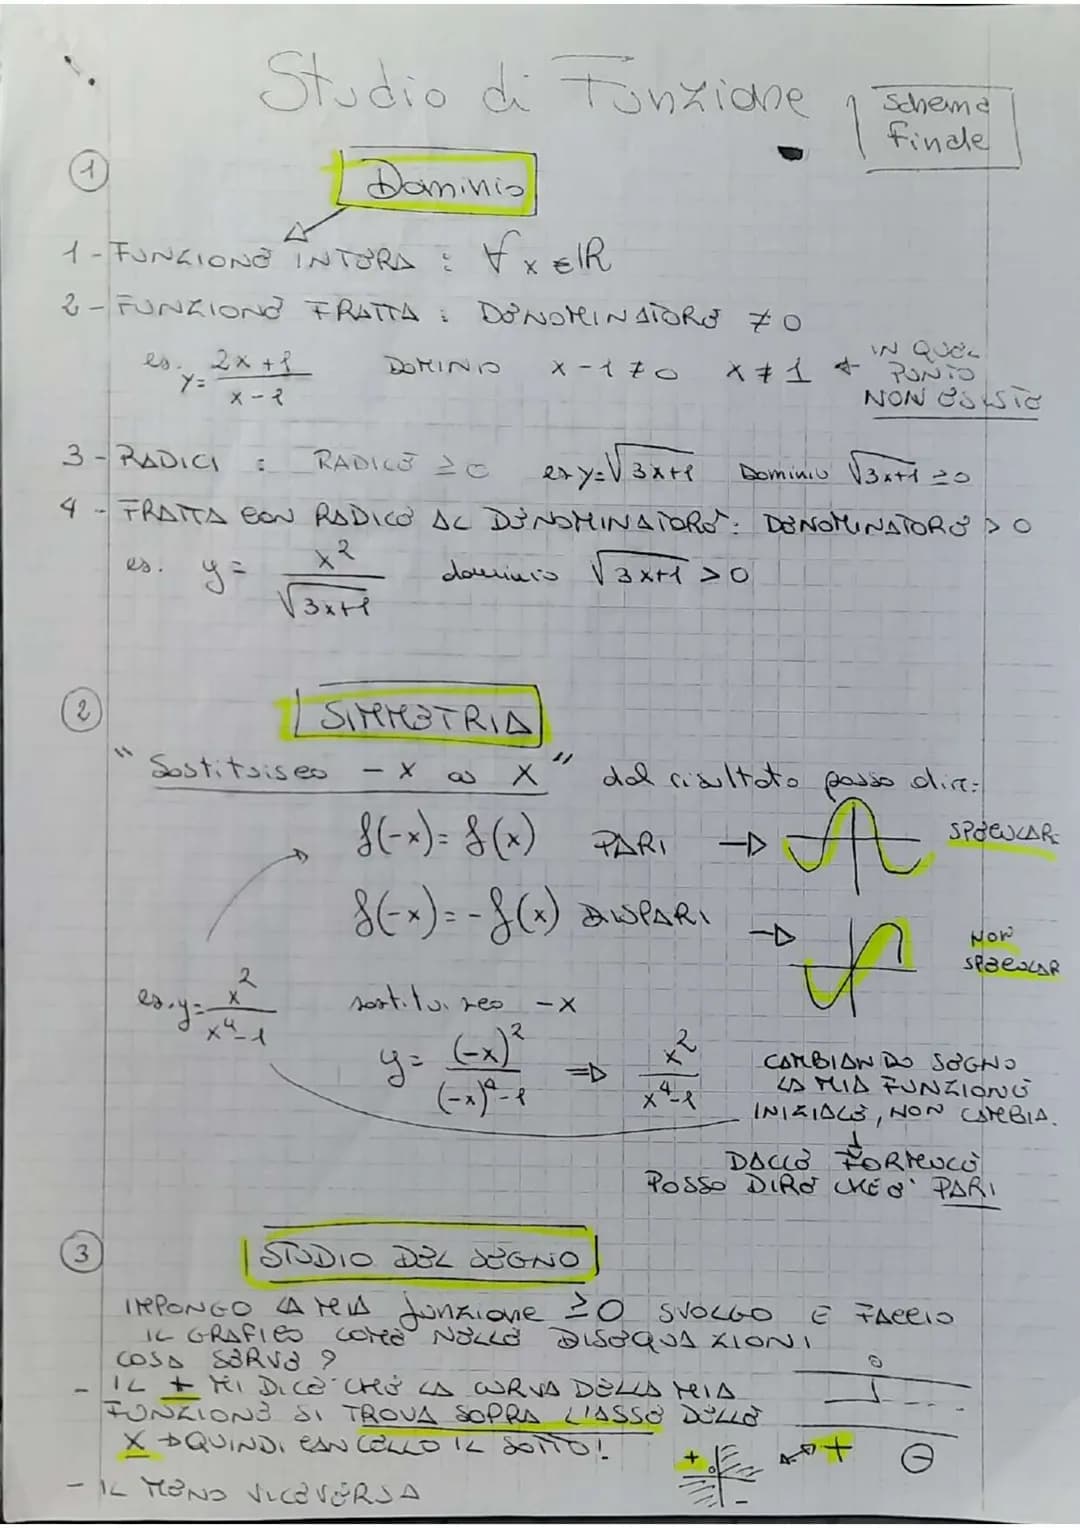 Studio di Funzione
Schema
finale
1
Dominio
1 - FUNZIONE INTERA : ∀ x ∈ ℝ
2 - FUNZIONE FRATTA : DENOMINATORE ≠ 0
es. y = (2x+1)/(x-1) DOMINIO x-1≠0 x≠1 ← IN QUEL
PUNTO
NON ESISTE
3 - RADICI : RADICE ≥ 0 es y=√(3x+1) Dominio √(3x+1) ≥ 0
4 - FRATTA CON RADICE AL DENOMINATORE: DENOMINATORE > 0
es. y = x²/√(3x+1) dominio √(3x+1) > 0
2
SIMMETRIA
"Sostituisco -x a x" dal risultato posso dire:
f(-x) = f(x) PARI → SPECULARE
f(-x) = -f(x) DISPARI → NON
SPECULAR
es. y = x²/(x⁴-1) sostituisco -x
y = (-x)²/((-x)⁴-1) ⇒ x²/(x⁴-1)
CAMBIANDO SEGNO
LA MIA FUNZIONE
INIZIALE, NON CAMBIA.
↓
DALLE FORMULE
POSSO DIRE CHE E' PARI
3
STUDIO DEL SEGNO
IMPONGO LA MIA funzione ≥0 SVOLGO E FACCIO
IL GRAFICO COME NELLE DISEQUAZIONI
COSA SERVE ?
0
- IL + MI DICE CHE LA CURVA DELLA MIA
FUNZIONE SI TROVA SOPRA L'ASSE DELLE
X → QUINDI CANCELLO IL SOTTO!
+ - ↔ + -
- IL MENO VICEVERSA